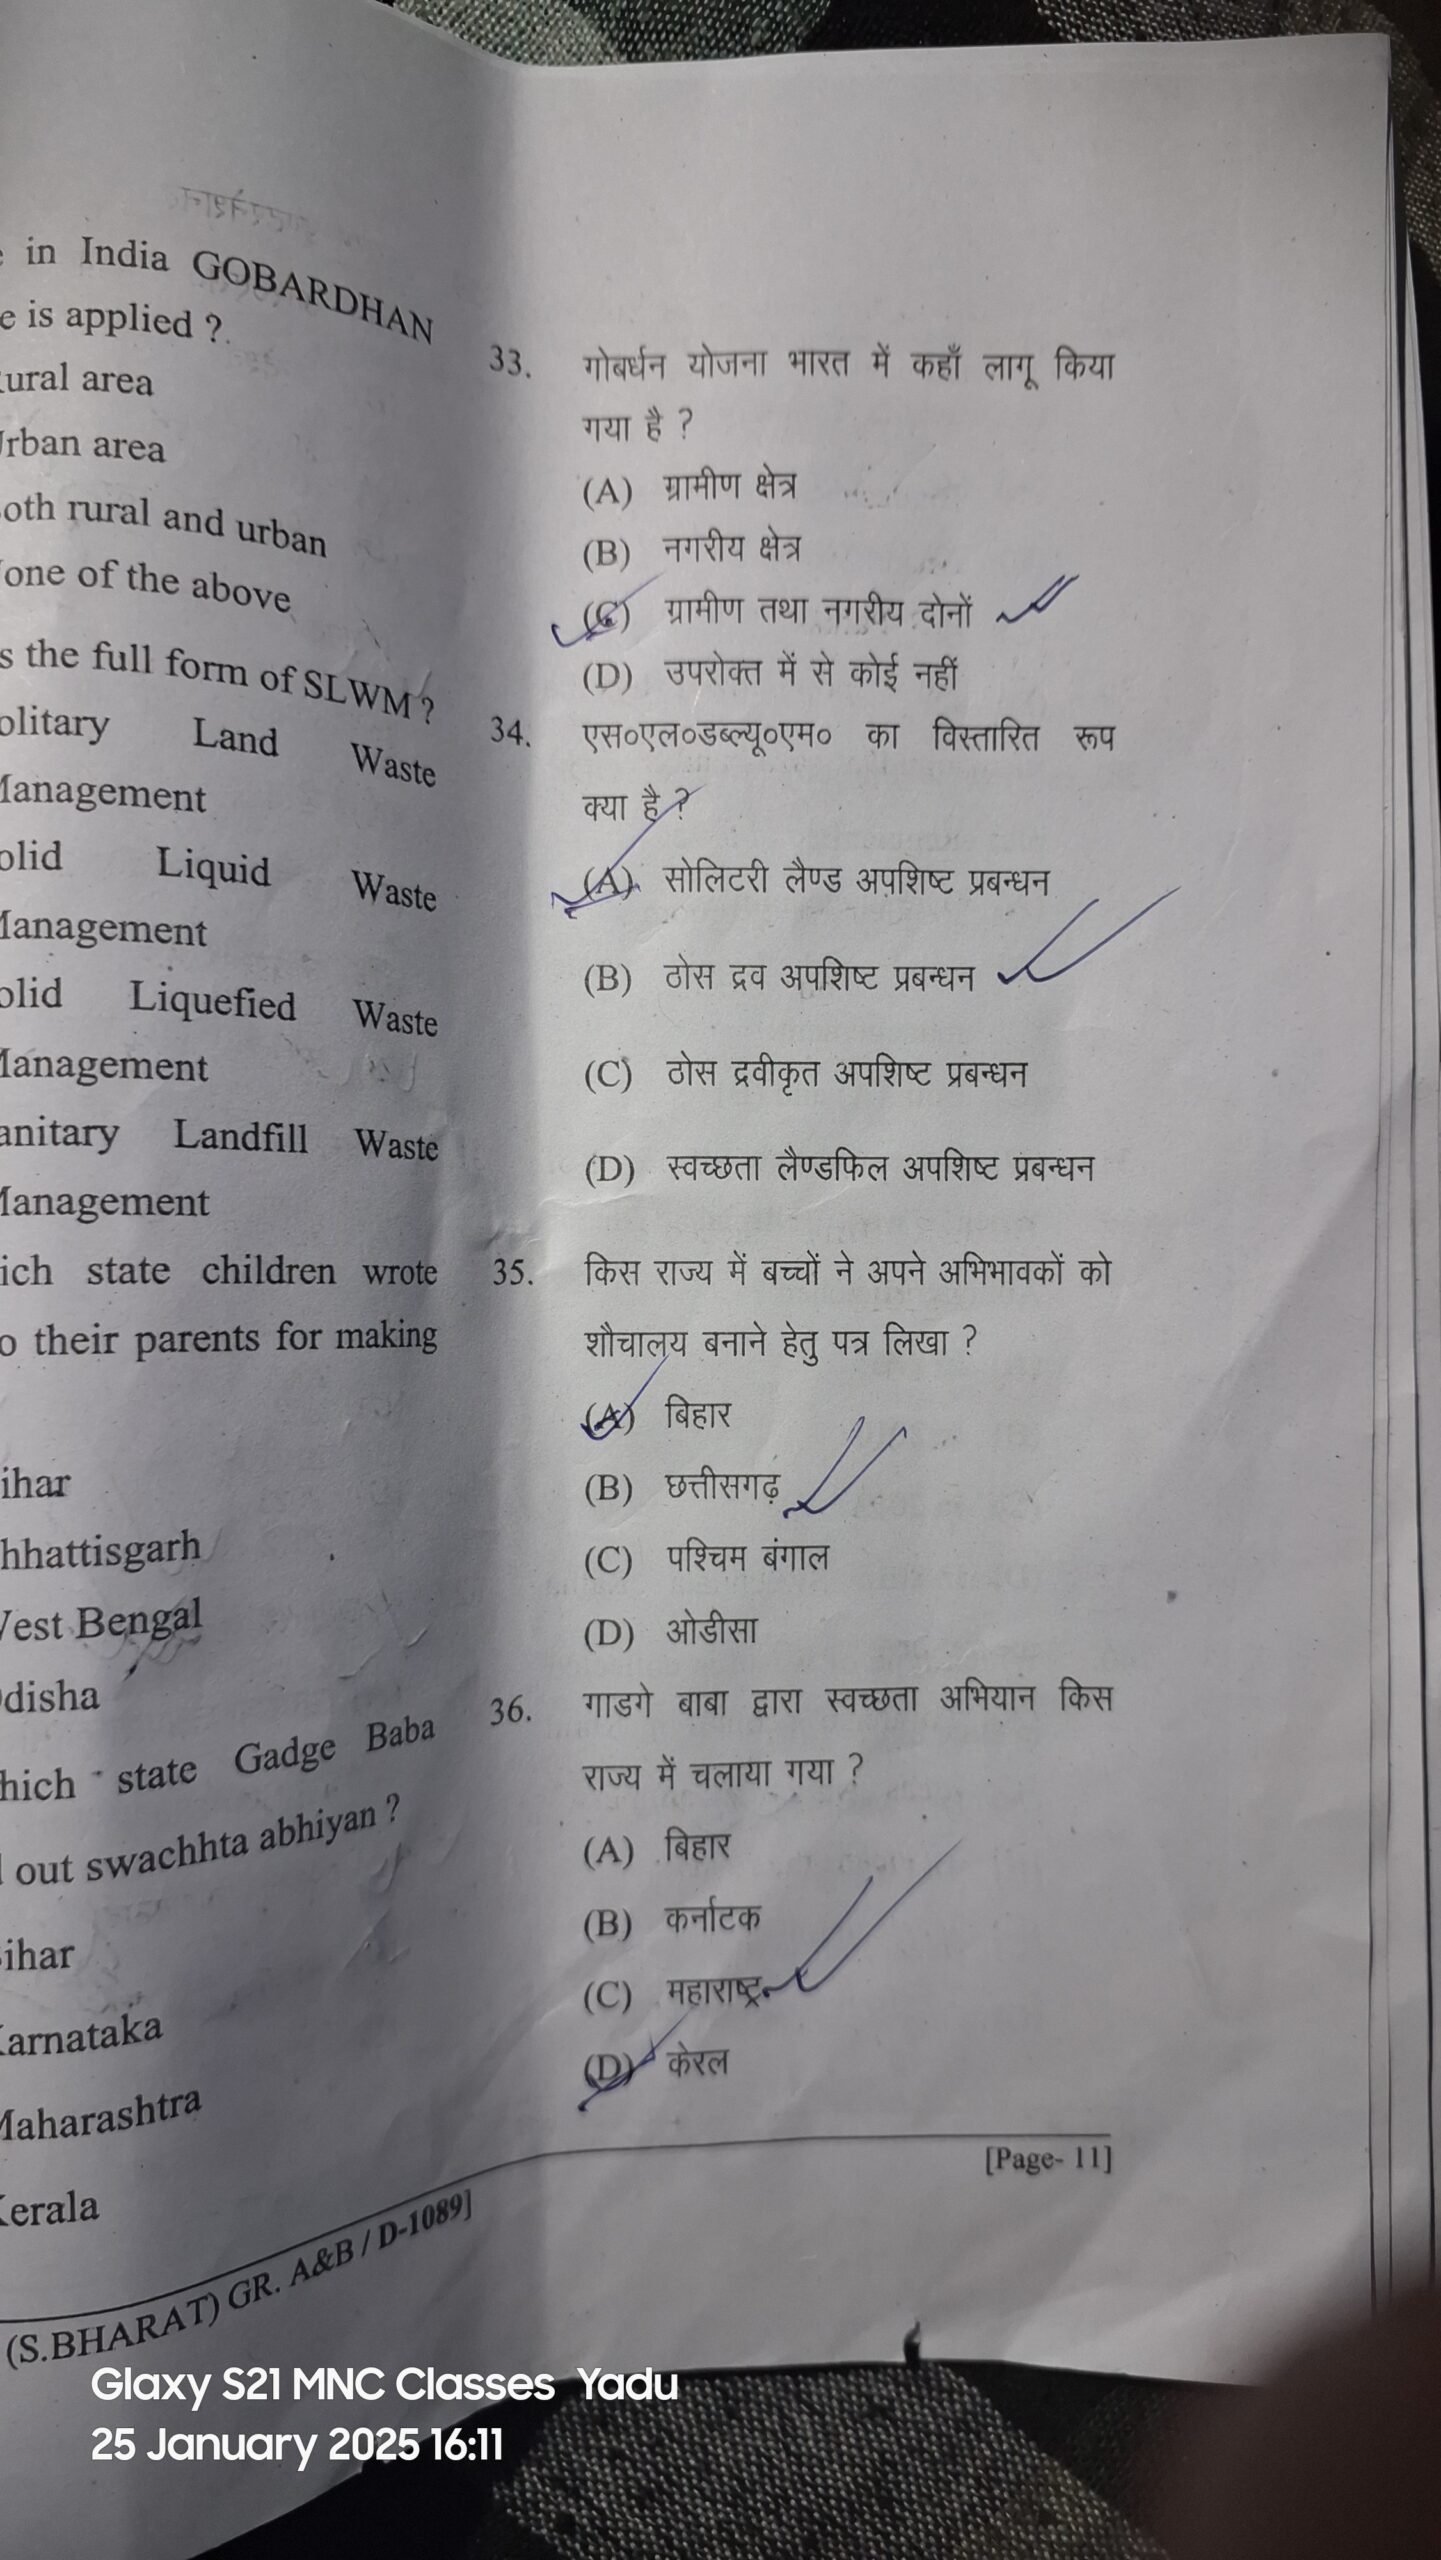 in India GOBARDHAN
is applied ?
area
area
rural and urban
of the above
the full form of SLWM ?
Land Waste
Liquid Waste
Liquefied Waste
Landfill Waste
state children wrote
their parents for making
West Bengal
state Gadge Baba
out swachhta abhiyan ?
33. गोबर्धन योजना भारत में कहाँ लागू किया
गया है ?
(A) ग्रामीण क्षेत्र
(B) नगरीय क्षेत्र
(C) ग्रामीण तथा नगरीय दोनों
(D) उपरोक्त में से कोई नहीं
34. एस०एल०डब्ल्यू०एम० का विस्तारित रूप
क्या है ?
(A) सोलिटरी लैण्ड अपशिष्ट प्रबन्धन
(B) ठोस द्रव अपशिष्ट प्रबन्धन
(C) ठोस द्रवीकृत अपशिष्ट प्रबन्धन
(D) स्वच्छता लैण्डफिल अपशिष्ट प्रबन्धन
35. किस राज्य में बच्चों ने अपने अभिभावकों को
शौचालय बनाने हेतु पत्र लिखा ?
(A) बिहार
(B) छत्तीसगढ़
(C) पश्चिम बंगाल
(D) ओडीसा
36. गाडगे बाबा द्वारा स्वच्छता अभियान किस
राज्य में चलाया गया ?
(A) बिहार
(B) कर्नाटक
(C) महाराष्ट्र
(D) केरल
[Page- 11]
(S.BHARAT) GR. A&B / D-1089]
Glaxy S21 MNC Classes Yadu
25 January 2025 16:11